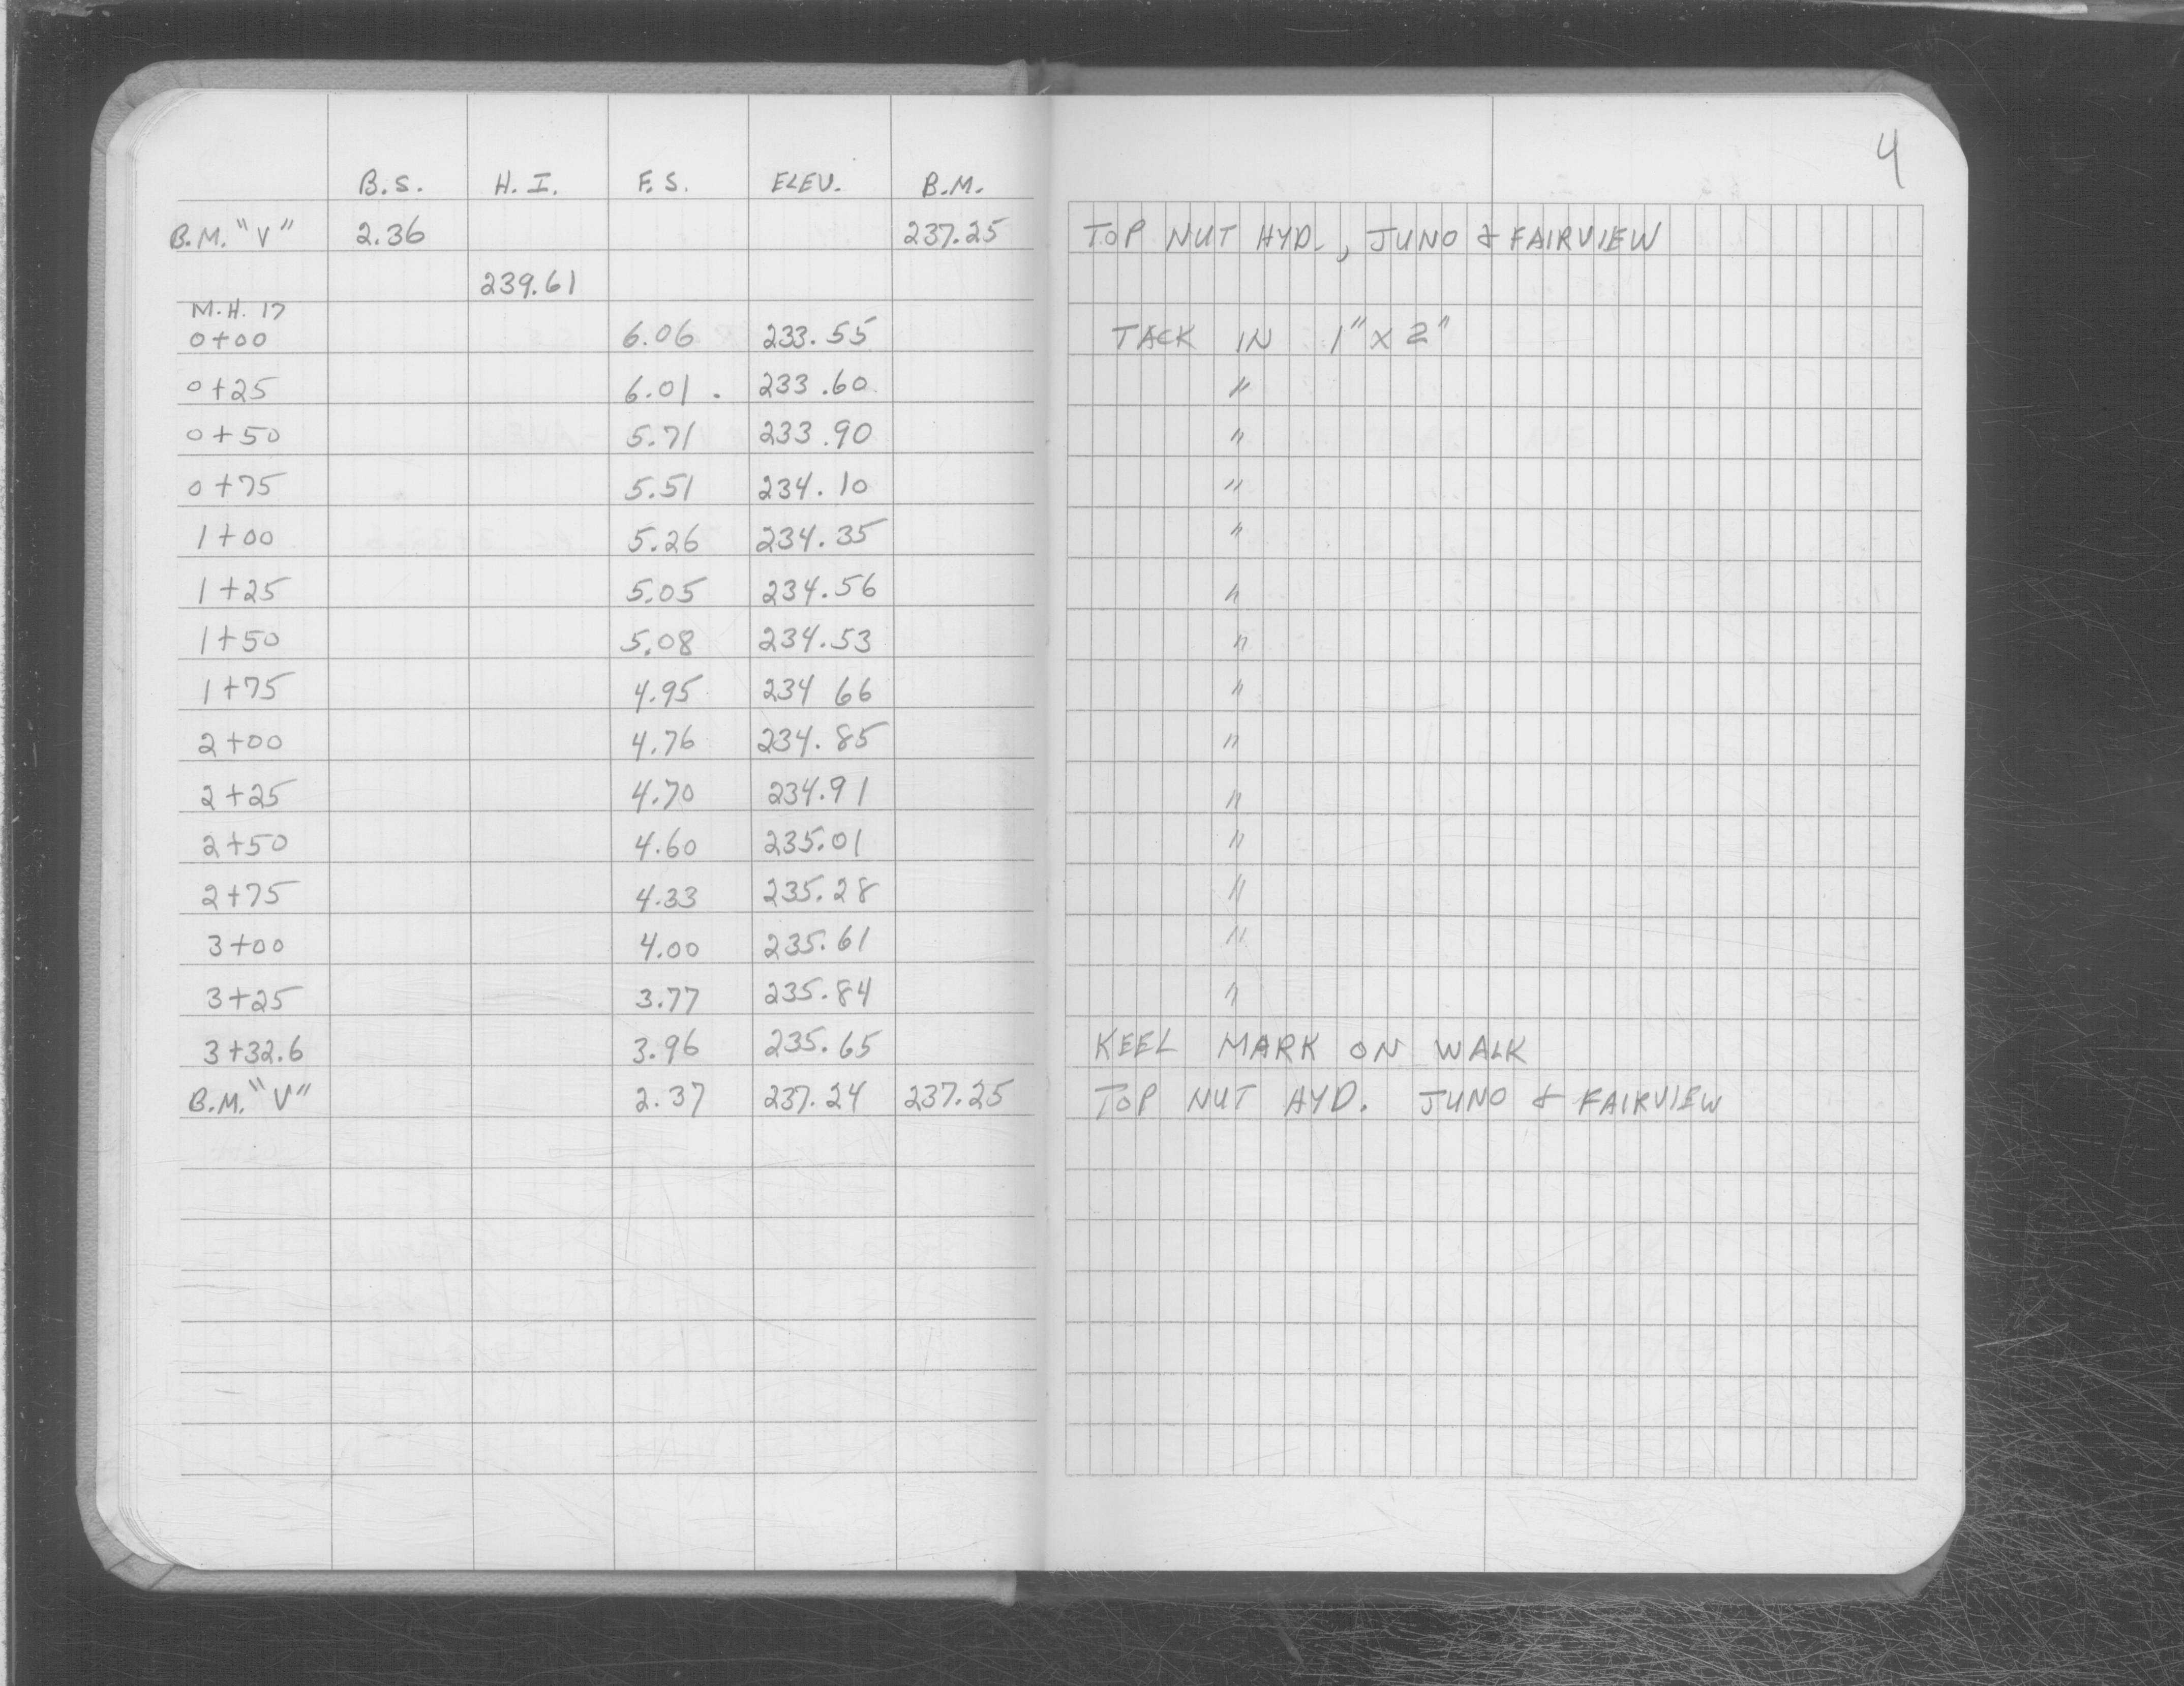 4
B.S. H.I. F.S. ELEV. B.M.
B.M. "V" 2.36 237.25 TOP NUT HYD., JUNO & FAIRVIEW
239.61
M.H. 17
0+00 6.06 233.55 TACK IN 1" X 2"
0+25 6.01 . 233.60 "
0+50 5.71 233.90 "
0+75 5.51 234.10 "
1+00 5.26 234.35 "
1+25 5.05 234.56 "
1+50 5.08 234.53 "
1+75 4.95 234 66 "
2+00 4.76 234.85 "
2+25 4.70 234.91 "
2+50 4.60 235.01 "
2+75 4.33 235.28 "
3+00 4.00 235.61 "
3+25 3.77 235.84 "
3+32.6 3.96 235.65 KEEL MARK ON WALK
B.M. "V" 2.37 237.24 237.25 TOP NUT HYD. JUNO & FAIRVIEW